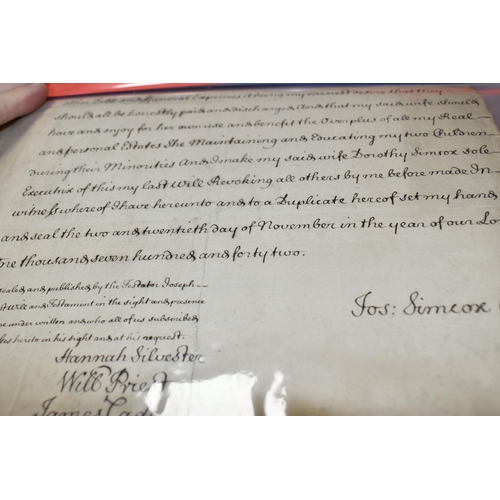 Debts and Funeral Expences it being my earnest desire that they
should all be honestly paid and discharged And that my said wife should
have and enjoy for her own use and benefit the Overplus of all my Real
and personal Estates She Maintaining and Educating my two Children
during their Minorities And I make my said wife Dorothy Simcox sole
Executrix of this my Last Will Revoking all others by me before made In
witness whereof I have hereunto and to a Duplicate hereof set my hand
and seal the two and twentieth day of November in the year of our Lo
One thousand seven hundred and forty two.
sealed and published by the Testator Joseph
Will and Testament in the sight and presence
under written and who all of us subscribed
hereto in his sight and at his request.
Jos: Simcox
Hannah Silvester
Will Priest
James